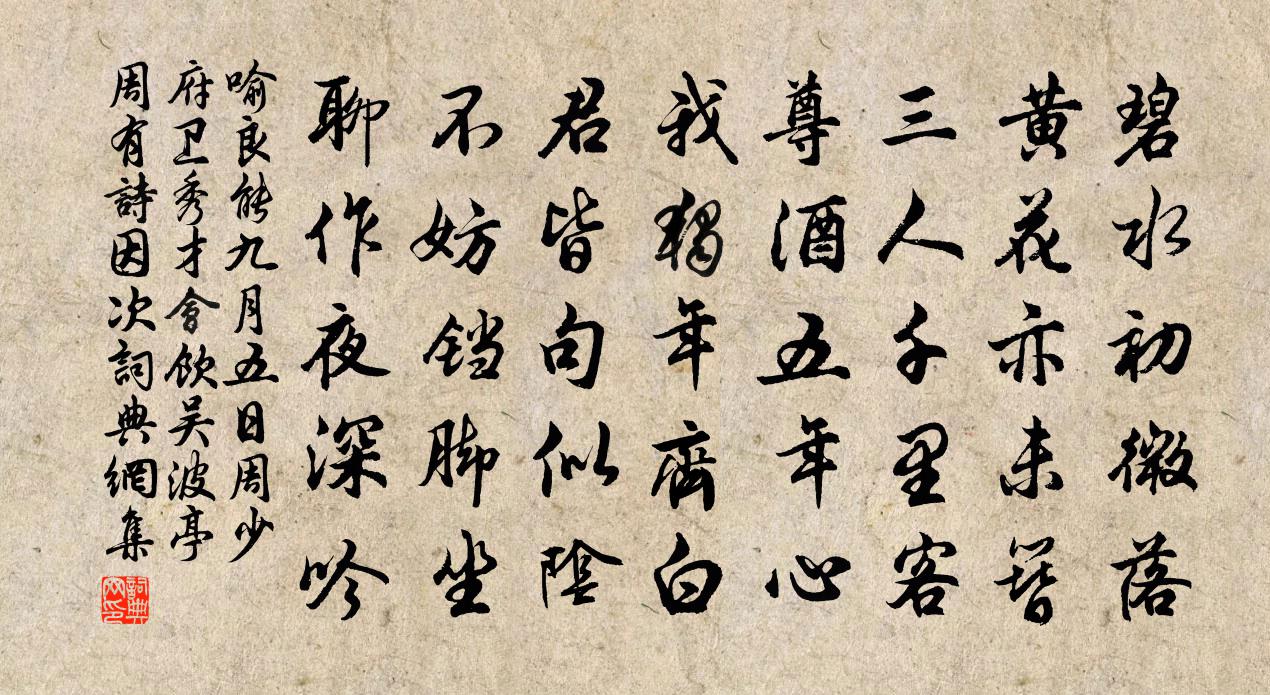 碧水初微落
黄花亦未簪
三人千里客
尊酒五年心
我獨年齊白
君皆句似陰
不妨鐺脚坐
聊作夜深吟
喻良能九月五日周少
府卫秀才會飲吴波亭
周有詩因次詞典網集
詞典網印